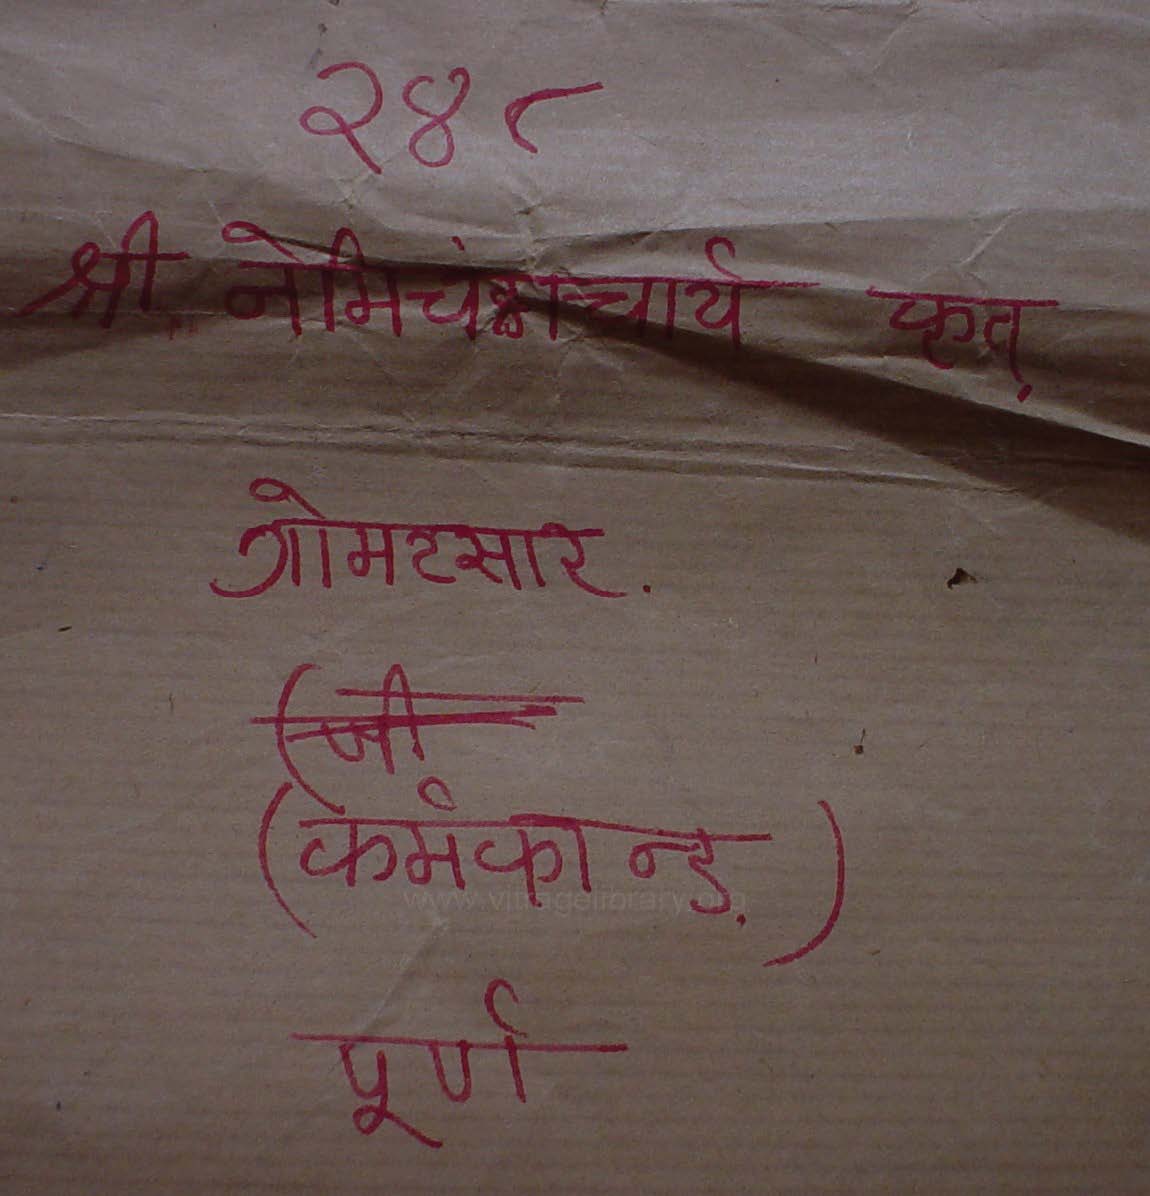 २४८
श्री नेमिचंद्राचार्य कृत्
गोमटसार.
(जी
(कर्मकान्ड़)
www.vitragelibrary.org
पूर्ण